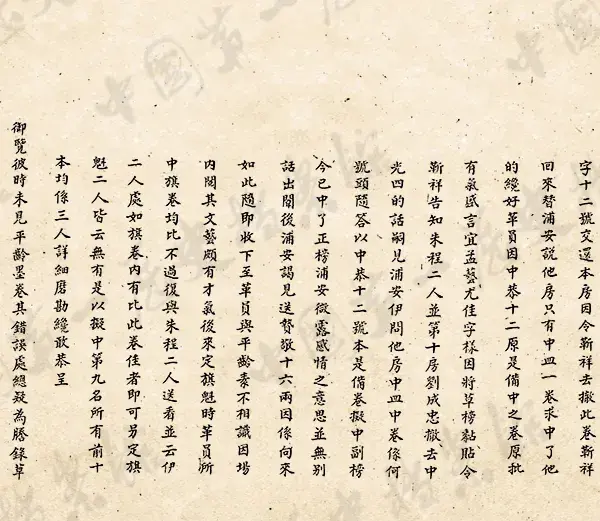 字十二號交還本房因令靳祥去撤此卷靳祥
回來替浦安說他房只有中皿一卷求中了他
的纔好革員因中恭十二原是備中之卷原批
有氣盛言宜孟藝尤佳字樣因將草榜黏貼令
靳祥告知朱程二人並第十房劉成忠撤去中
光四的話嗣見浦安伊問他房中皿中卷係何
號頭隨答以中恭十二號本是備卷擬中副榜
今已中了正榜浦安微露感情之意思並無別
話出闈後浦安謁見送贄敬十六兩因係向來
如此隨即收下至革員與平齡素不相識因場
內閱其文藝頗有才氣後來定旗魁時革員所
中旗卷均比不過復與朱程二人送看並云伊
二人處如旗卷內有比此卷佳者即可另定旗
魁二人皆云無有是以擬中第九名所有前十
本均係三人詳細磨勘纔敢恭呈
御覽彼時未見平齡墨卷其錯誤處總疑為謄錄草